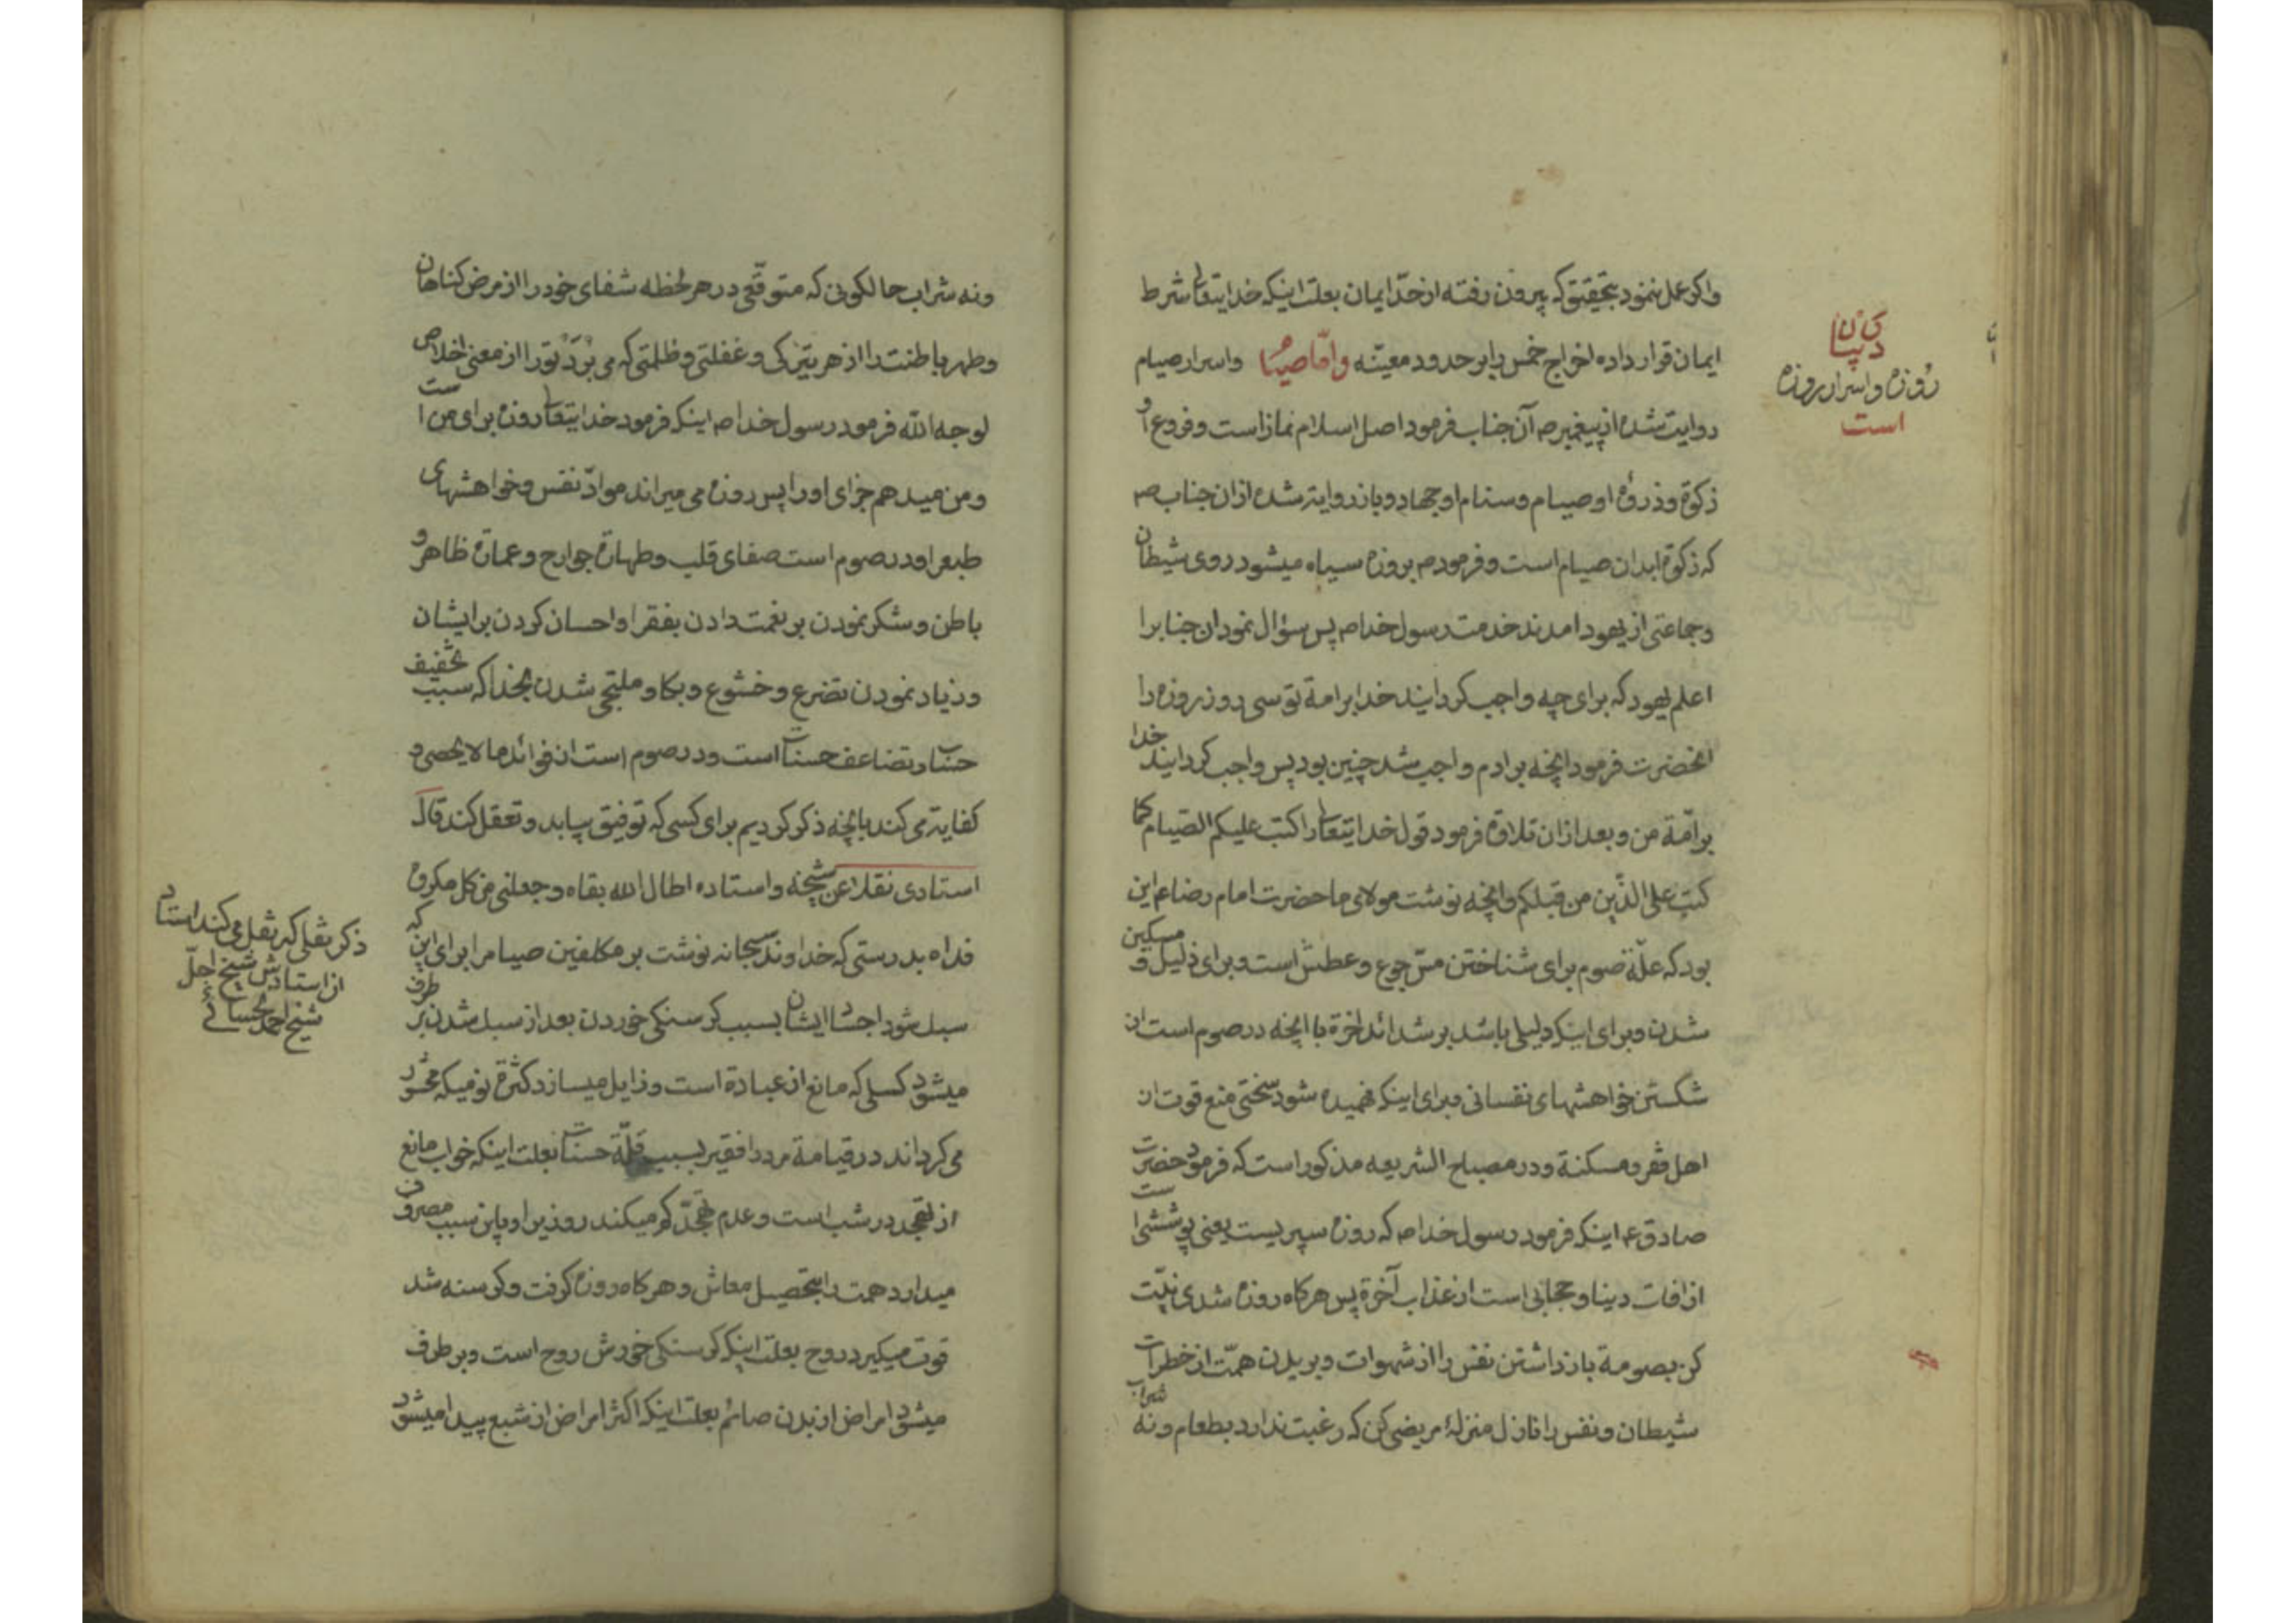 واکر عمل ننمود بتحقیق که بیرون رفته از حدّ ایمان بعلت اینکه خدایتعالی شرط
ایمان قرار داده اخراج خمس را بر حدود معیّنه وامّا صیام واسرار صیام
در بیان
روزه و اسرار روزه
است
روایت شده از پیغمبر ص آن جناب فرمود اصل اسلام نماز است و فروع او
زکوة و ذروهٔ او صیام و سنام او جهاد و باز روایة شده از ان جناب ص
که زکوة ابدان صیام است و فرمود ص بروزه سیاه میشود روی شیطان
وجماعتی از یهود امدند خدمت رسول خدا ص پس سؤال نمود ان جنابرا
اعلم یهود که برای چه واجب کردانید خدا بر امة تو سی روز روزه را
انحضرت فرمود انچه بر ادم واجب شد چنین بود پس واجب کردانید خدا
بر امّة من و بعد از ان تلاوة فرمود قول خدایتعالی را کتب علیکم الصّیام کما
کتب علی الذّین من قبلکم وانچه نوشت مولای ما حضرت امام رضا ع این
بود که علّة صوم برای شناختن مسّ جوع و عطش است و برای ذلیل و مسکین
شدن و برای اینکه دلیلی باشد بر شدائد اخرة با انچه در صوم است از
شکستن خواهشهای نفسانی و برای اینکه فهمیده شود سختی منع قوت از
اهل فقر و مسکنة و در مصباح الشریعه مذکور است که فرمود حضرت
صادق ع اینکه فرمود رسول خدا ص که روزه سپریست یعنی پوششی است
از افات دینا و حجابی است از عذاب آخرة پس هرکاه روزه شدی نیّت
کن بصومة باز داشتن نفس را از شهوات و بریدن همّت از خطرات
شیطان و نفس را نازل منزلهٔ مریضی کن که رغبت ندارد بطعام و نه شراب
ونه شراب حالکونی که متوقّعی در هر لحظه شفای خود را از مرض کناهان
وطهر باطنت را از هر تیرکی و غفلتی و ظلمتی که می بُرَد تو را از معنی اخلاص
لوجه الله فرمود رسول خدا ص اینکه فرمود خدایتعالی روزه برای من است
ومن میدهم جزای او را پس روزه می میراند موادّ نفس و خواهشهای
طبع را و در صوم است صفای قلب و طهارة جوارح و عمارة ظاهر و
باطن و شکر نمودن بر نعمت دادن بفقرا و احسان کردن بر ایشان
و زیاد نمودن تضرع و خشوع و بکا و ملتجی شدن بخدا که سبب تخفیف
حساب و تضاعف حسنات است و در صوم است از فوائد ما لا یحصی و
کفایة می کند بانچه ذکر کردیم برای کسی که توفیق بیابد و تعقل کند قال
استادی نقلا عن شیخه و استاده اطال الله بقاه و جعلنی من کل مکروه
فداه بدرستی که خداوند سبحانه نوشت بر مکلفین صیام را برای این که
ذکر نقلی که نقل می کند استاد
از استادش شیخ اجلّ
شیخ احمد احسائی
سبل شود اجساد ایشان بسبب کرسنکی خوردن بعد از سبل شدن بر طرف
میشود کسلی که مانع از عبادة است و زایل میسازد کثرة نومیکه محشور
می کرداند در قیامة مرد را فقیر بسبب قلّة حسنات بعلت اینکه خواب مانع
از تهجد در شب است و عدم تهجّد کم میکند روزی را و باین سبب مصروف
میدارد همت را بتحصیل معاش و هرکاه روزه کرفت و کرسنه شد
قوت میکیرد روح بعلت اینکه کرسنکی خورش روح است و بر طرف
میشود امراض از بدن صائم بعلت اینکه اکثر امراض از شبع پیدا میشود